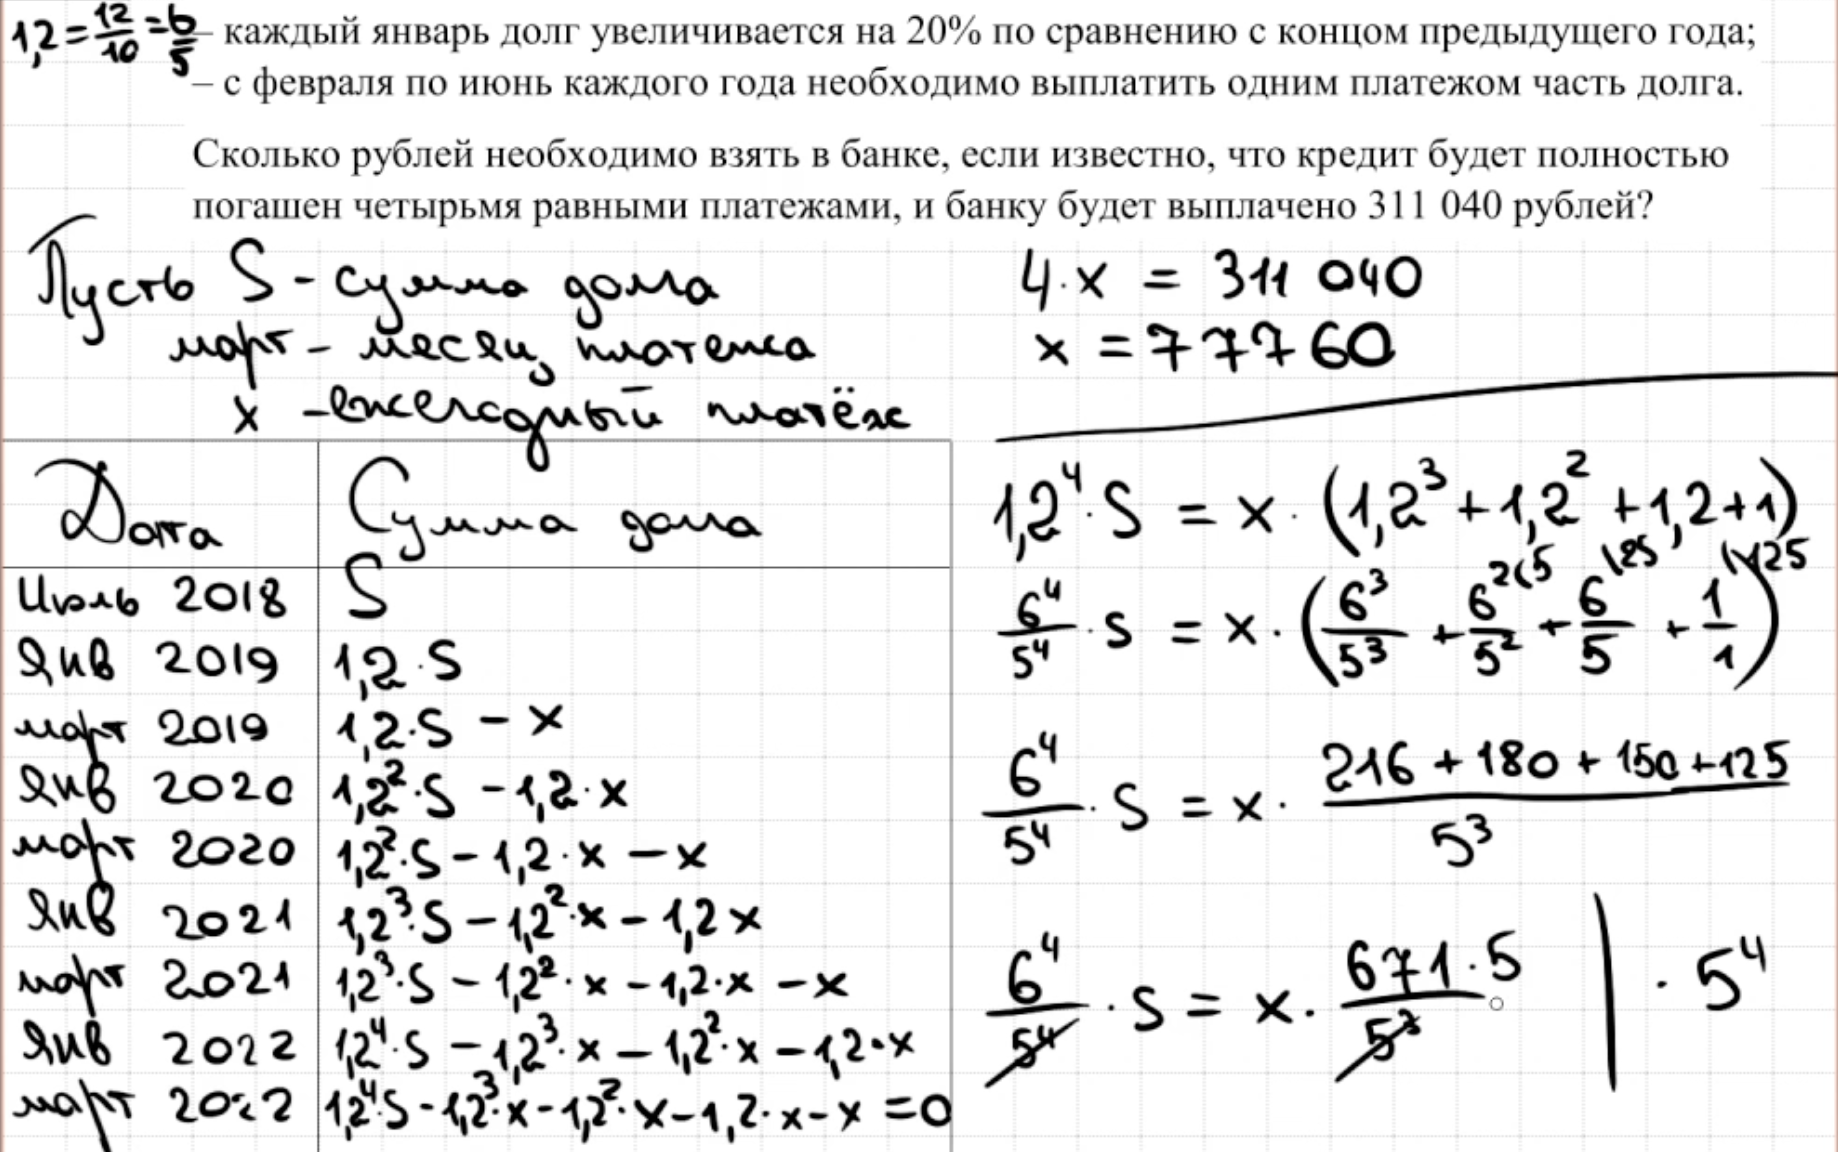 1,2 = 12/10 = 6/5
– каждый январь долг увеличивается на 20% по сравнению с концом предыдущего года;
– с февраля по июнь каждого года необходимо выплатить одним платежом часть долга.
Сколько рублей необходимо взять в банке, если известно, что кредит будет полностью
погашен четырьмя равными платежами, и банку будет выплачено 311 040 рублей?
Пусть S - сумма долга
март - месяц платежа
x - ежегодный платёж
4·x = 311 040
x = 77760
Дата Сумма долга
Июль 2018 S
Янв 2019 1,2·S
март 2019 1,2·S - x
Янв 2020 1,2²·S - 1,2·x
март 2020 1,2²·S - 1,2·x - x
Янв 2021 1,2³·S - 1,2²·x - 1,2x
март 2021 1,2³·S - 1,2²·x - 1,2·x - x
Янв 2022 1,2⁴·S - 1,2³·x - 1,2²·x - 1,2·x
март 2022 1,2⁴·S - 1,2³·x - 1,2²·x - 1,2·x - x = 0
1,2⁴·S = x·(1,2³ + 1,2² + 1,2 + 1)
6⁴/5⁴·S = x·(6³/5³ + 6²\5/5² + 6\25/5 + 1\125/1)
6⁴/5⁴·S = x·(216 + 180 + 150 + 125)/5³
6⁴/5⁴·S = x·671·5/5³ | ·5⁴